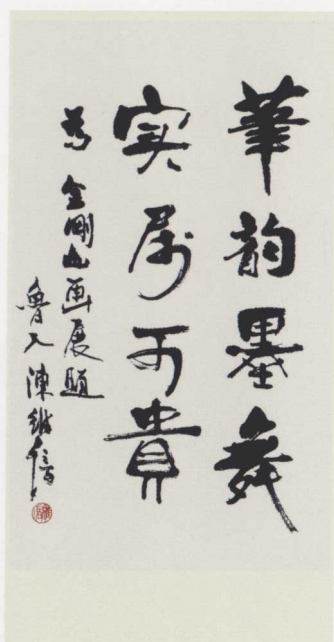 華韵墨舞
实属可貴
为金刚山画展题
鲁人陳維信